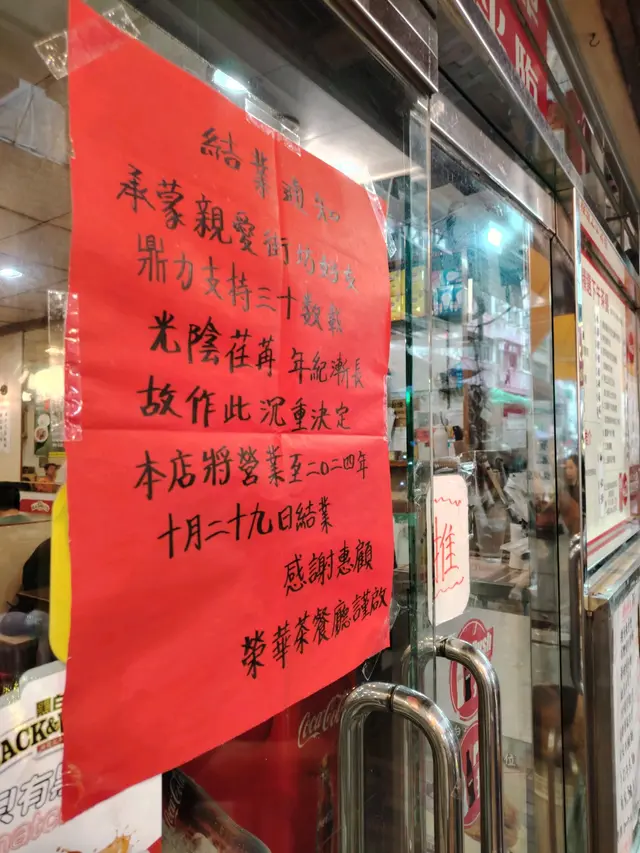 結業通知
承蒙親愛街坊好友
鼎力支持三十數載
光陰荏苒 年紀漸長
故作此沉重決定
本店將營業至二〇二四年
十月二十九日結業
感謝惠顧
榮華茶餐廳謹啟
推
Coca-Cola